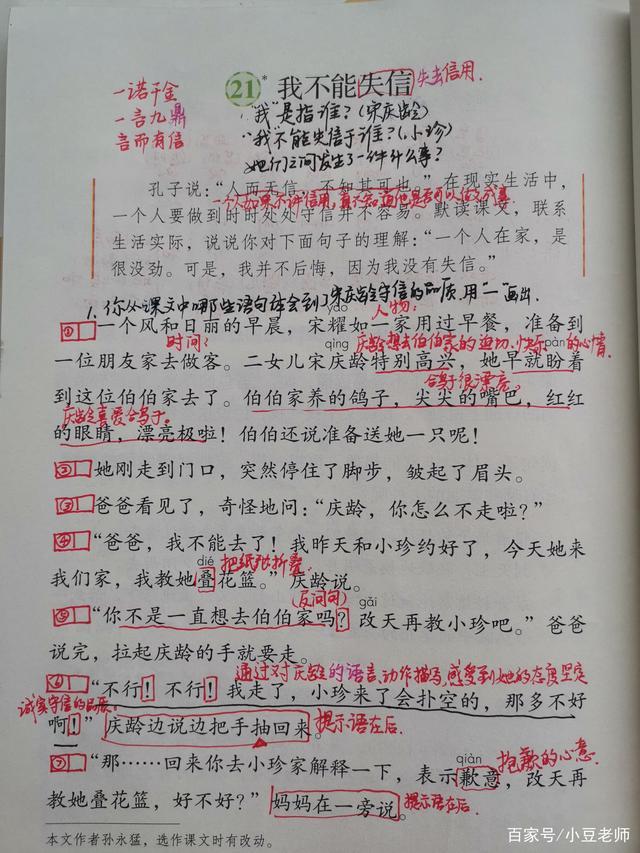 21* 我不能失信 失去信用.
一诺千金
一言九鼎
言而有信
"我"是指谁?(宋庆龄)
"我"不能失信于谁?(小珍)
她们之间发生了一件什么事?
孔子说:"人而无信,不知其可也。"在现实生活中,
一个人如果不讲信用,真不知道他是否可以做成事.
一个人要做到时时处处守信并不容易。默读课文,联系
生活实际,说说你对下面句子的理解:"一个人在家,是
很没劲。可是,我并不后悔,因为我没有失信。"
1. 你从课文中哪些语句体会到了宋庆龄守信的品质.用"—"画出.
人物:
yào
① 一个风和日丽的早晨,宋耀如一家用过早餐,准备到
时间?
庆龄想去伯伯家的迫切、愉快的心情.
qìng pàn
一位朋友家去做客。二女儿宋庆龄特别高兴,她早就盼着
鸽子很漂亮.
到这位伯伯家去了。伯伯家养的鸽子,尖尖的嘴巴,红红
庆龄喜爱鸽子.
的眼睛,漂亮极啦!伯伯还说准备送她一只呢!
② 她刚走到门口,突然停住了脚步,皱起了眉头。
③ 爸爸看见了,奇怪地问:"庆龄,你怎么不走啦?"
④ "爸爸,我不能去了!我昨天和小珍约好了,今天她来
dié 把纸张折叠.
我们家,我教她叠花篮。"庆龄说。
(反问句)
gǎi
⑤ "你不是一直想去伯伯家吗?改天再教小珍吧。"爸爸
说完,拉起庆龄的手就要走。
通过对庆龄的语言、动作描写,感受到她的态度坚定
⑥ "不行!不行!我走了,小珍来了会扑空的,那多不好
诚实守信的品质.
啊!"庆龄边说边把手抽回来。提示语在后.
qiàn 抱歉的心意.
⑦ "那……回来你去小珍家解释一下,表示歉意,改天再
教她叠花篮,好不好?"妈妈在一旁说。提示语在后.
本文作者孙永猛,选作课文时有改动。
百家号/小豆老师